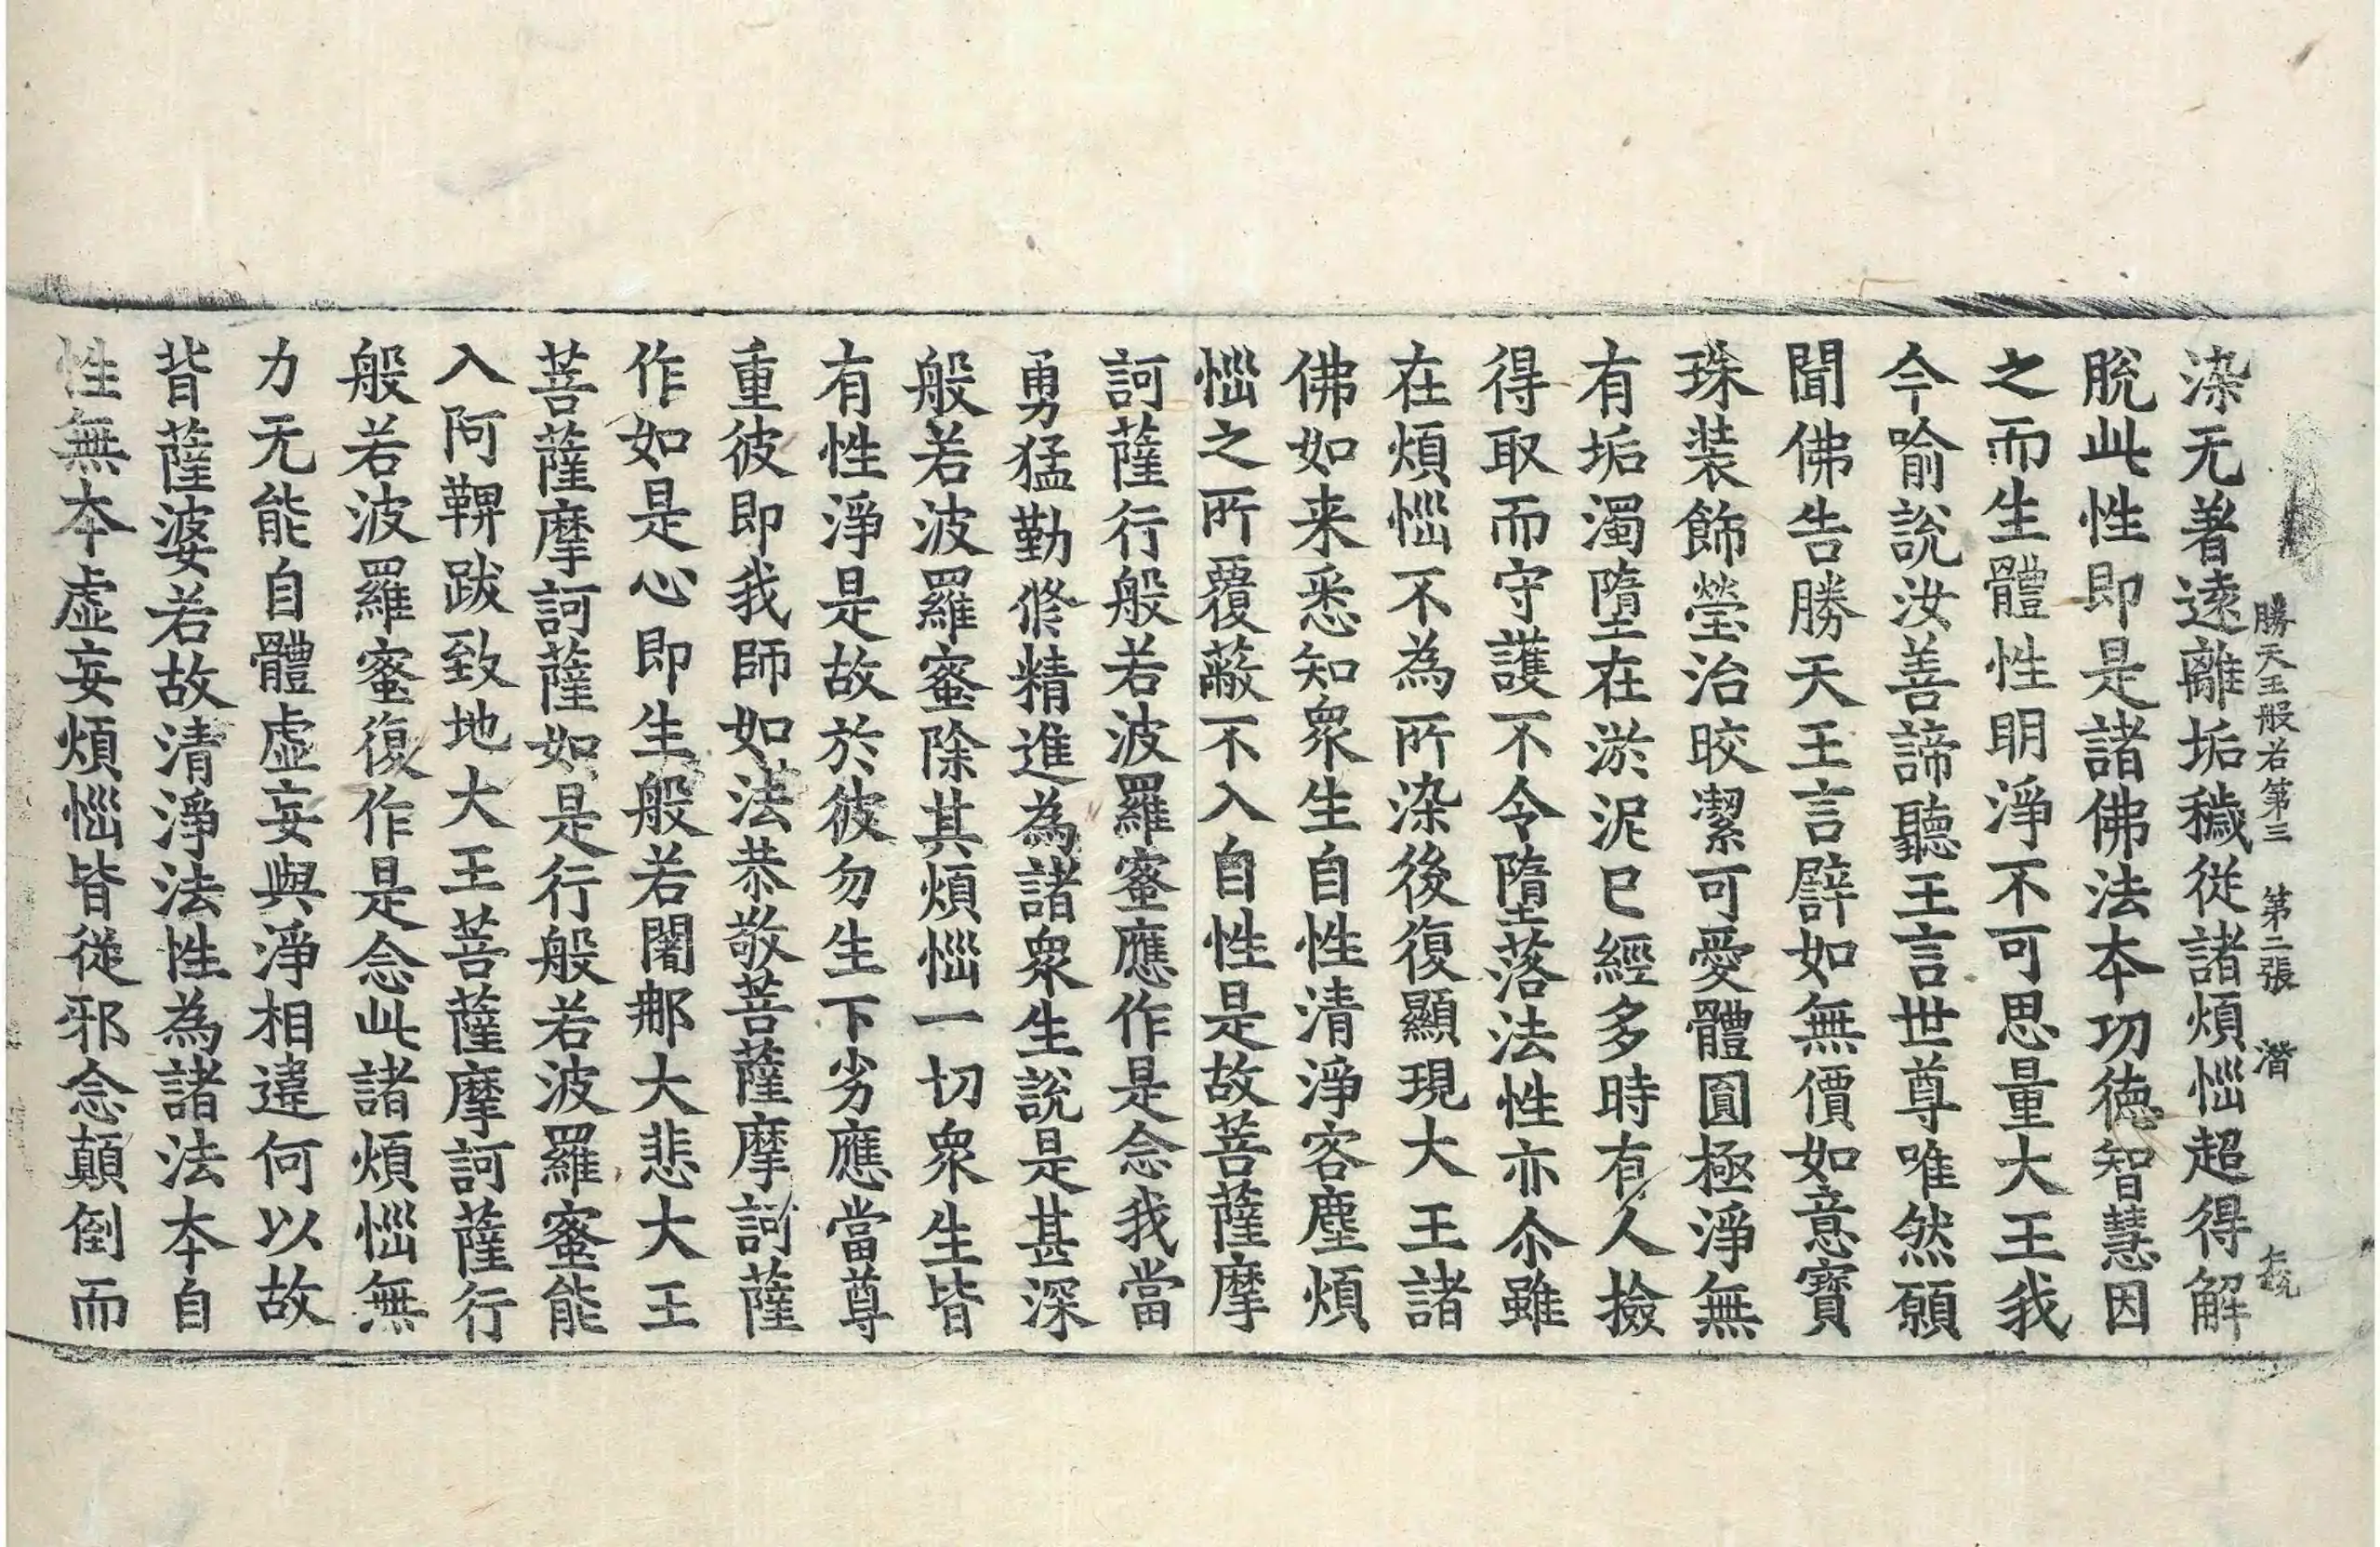 勝天王般若第三　第二張　潛
染无著遠離垢穢從諸煩惱超得解
脫此性即是諸佛法本功德智慧因
之而生體性明淨不可思量大王我
今喻說汝善諦聽王言世尊唯然願
聞佛告勝天王言譬如無價如意寶
珠裝飾瑩治皎潔可愛體圓極淨無
有垢濁墮在淤泥已經多時有人撿
得取而守護不令墮落法性亦尒雖
在煩惱不為所染後復顯現大王諸
佛如来悉知衆生自性清淨客塵煩
惱之所覆蔽不入自性是故菩薩摩
訶薩行般若波羅蜜應作是念我當
勇猛勤修精進為諸衆生說是甚深
般若波羅蜜除其煩惱一切衆生皆
有性淨是故於彼勿生下劣應當尊
重彼即我師如法恭敬菩薩摩訶薩
作如是心即生般若闍那大悲大王
菩薩摩訶薩如是行般若波羅蜜能
入阿鞞跋致地大王菩薩摩訶薩行
般若波羅蜜復作是念此諸煩惱無
力无能自體虛妄與淨相違何以故
背薩婆若故清淨法性為諸法本自
性無本虛妄煩惱皆從邪念顛倒而